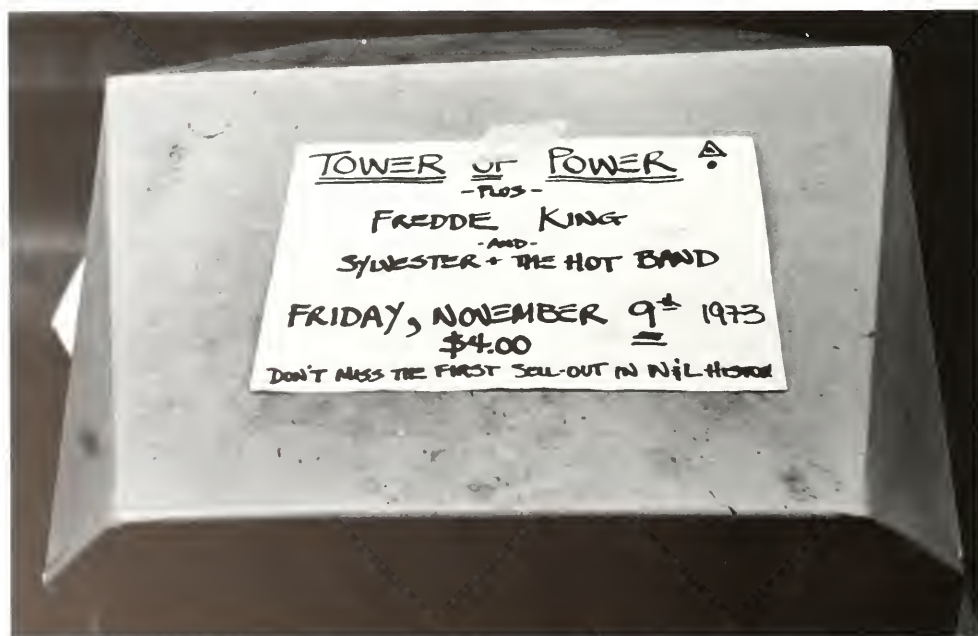 TOWER OF POWER
-PLUS-
FREDDE KING
-AND-
SYLVESTER + THE HOT BAND
FRIDAY, NOVEMBER 9th 1973
$4.00
DON'T MISS THE FIRST SELL-OUT IN W&L HISTORY